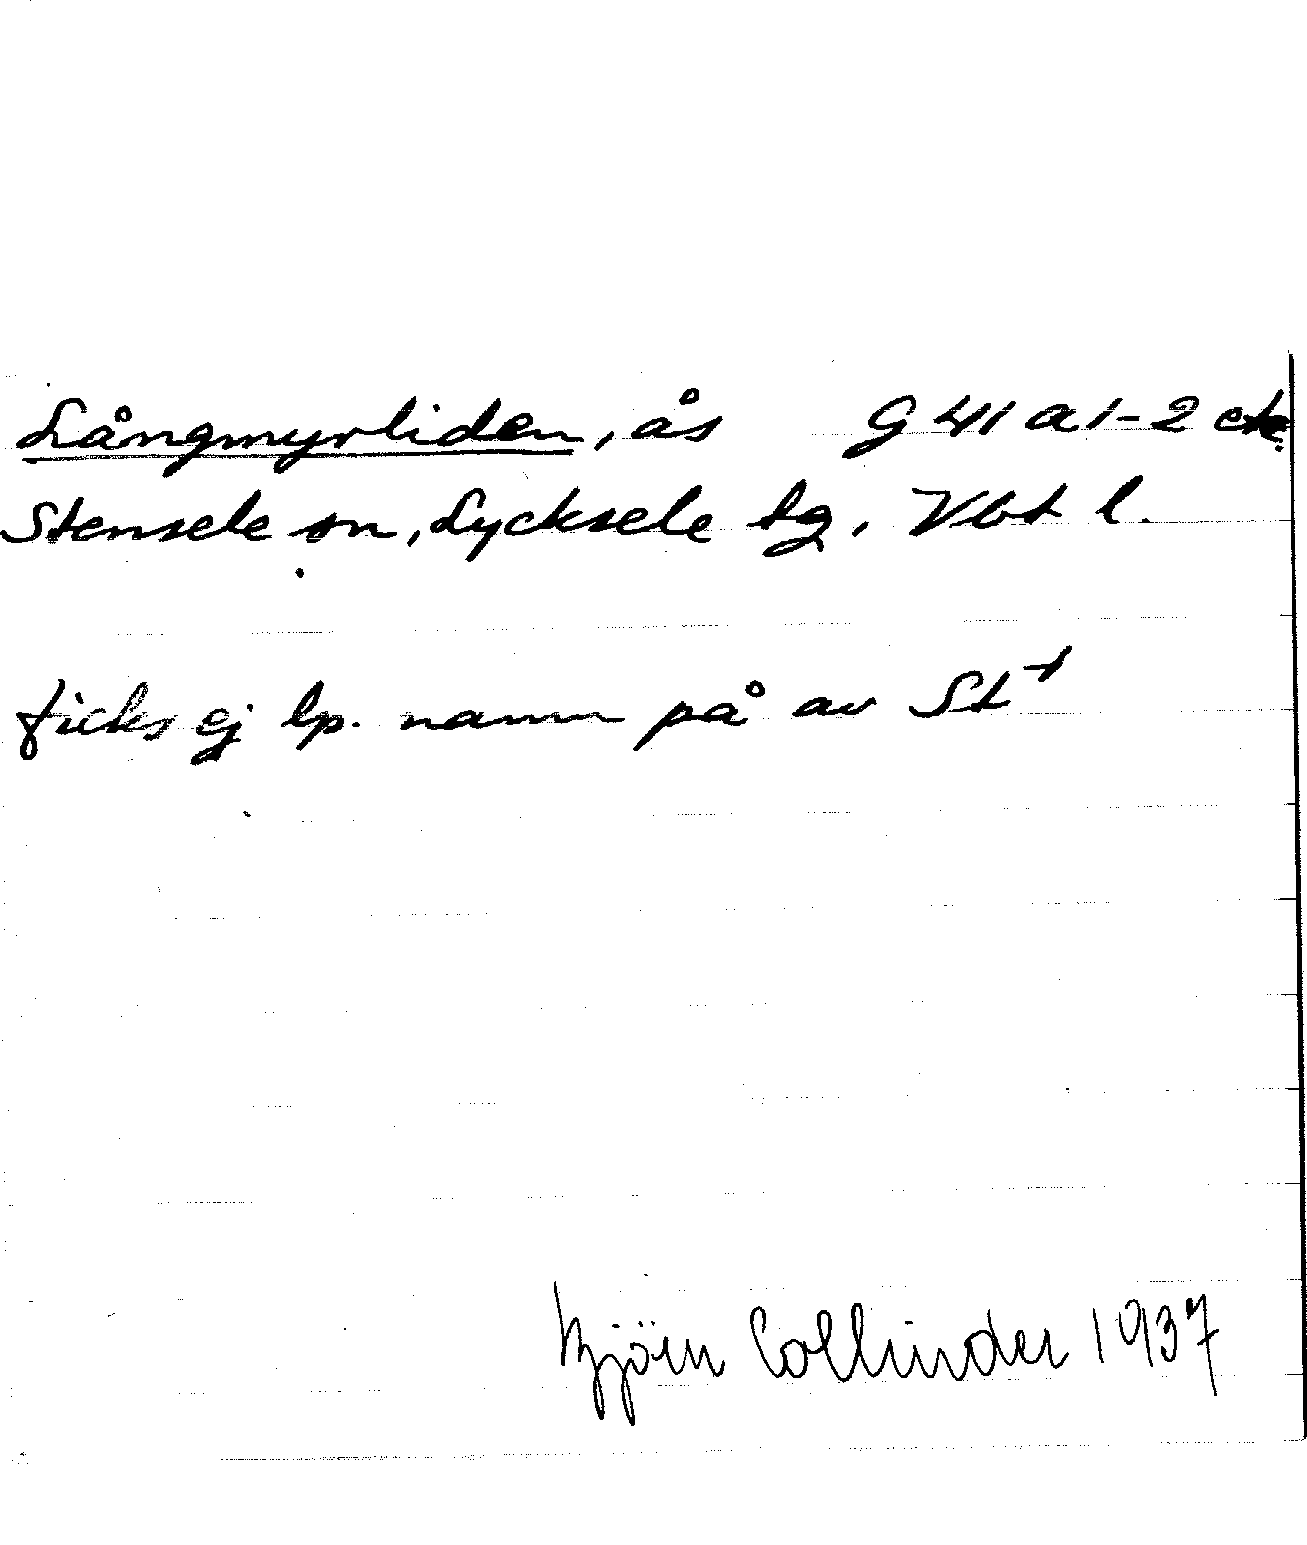 Långmyrliden, ås G 41 a 1-2 etc.
Stensele sn, Lycksele tg. Vbt l.
ficks ej lp. namn på av St¹
Björn Collinder 1937